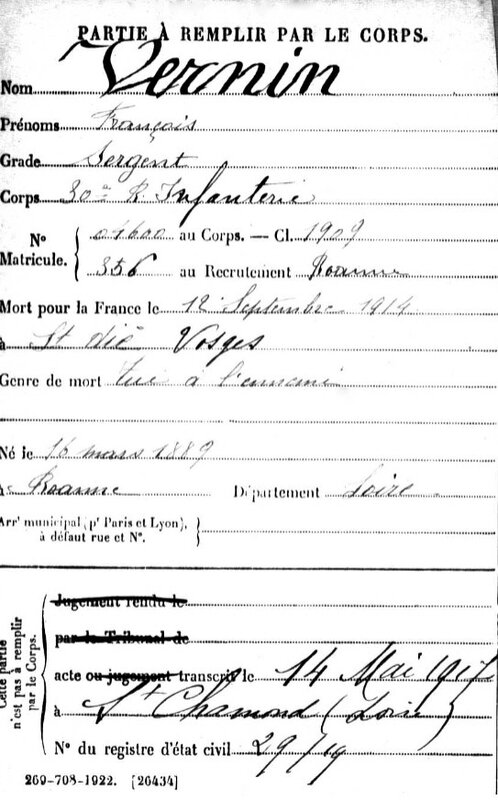 PARTIE À REMPLIR PAR LE CORPS.
Nom Vernin
Prénoms François
Grade Sergent
Corps 30me R. Infanterie
No Matricule. 01600 au Corps. — Cl. 1909
356 au Recrutement Roanne
Mort pour la France le 12 Septembre 1914
à St dié Vosges
Genre de mort tué à l'ennemi
Né le 16 mars 1889
à Roanne Département Loire
Arrt municipal (pr Paris et Lyon), à défaut rue et No.
Cette partie n'est pas à remplir par le Corps.
Jugement rendu le
par le Tribunal de
acte ou jugement transcrit le 14 Mai 1917
à St Chamond (Loire)
No du registre d'état civil 29/19
269-708-1922. [26434]